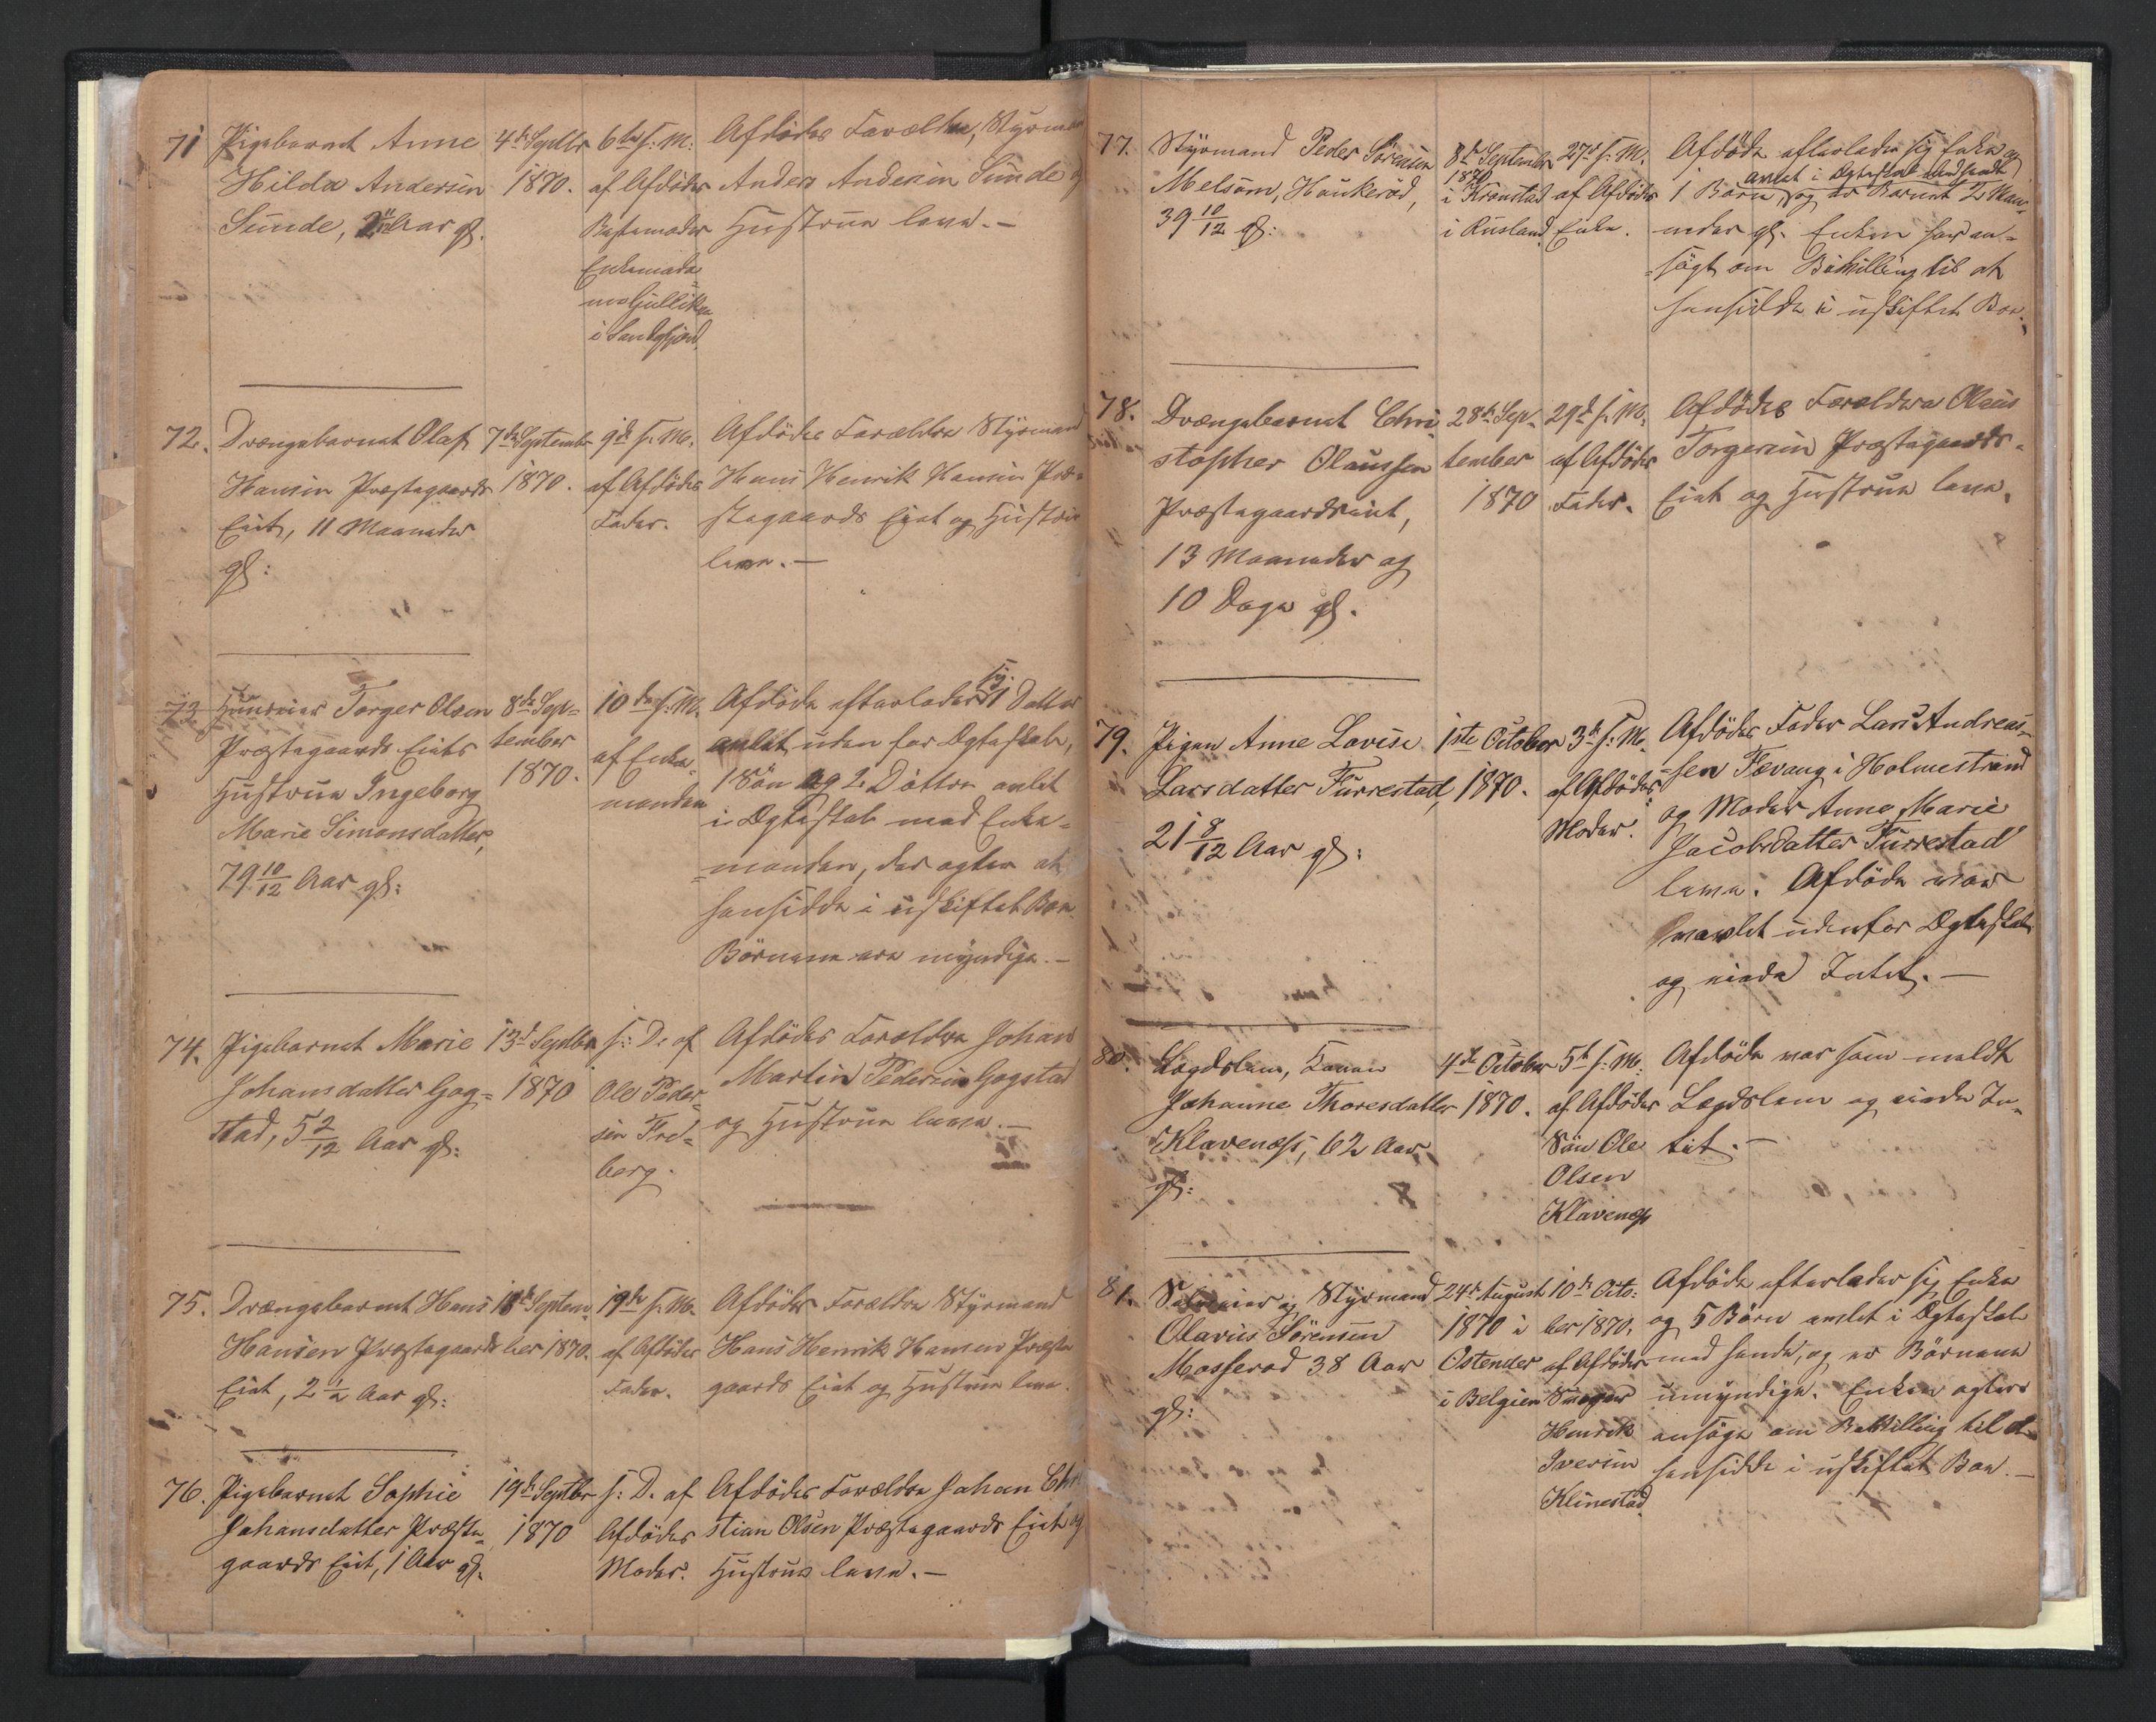 71
Pigebarnet Anne
Hilda Andersen
Sunde, 2 Aar gl.
4de Septbr
1870.
6te s. M.
af Afdødes
Bestemoder
Enkemada
me Gullik
i Sandefjord.
Afdødes Forældre, Styrmand
Anders Andersen Sunde og
Hustrue leve. —
72.
Drængebarnet Olaf
Hansen Præstegaards
Eiet, 11 Maaneder
gl:
7de September
1870.
9de s. M.
af Afdødes
Fader.
Afdødes Forældre Styrmand
Hans Henrik Hansen Præ-
stegaards Eiet og Hustrue
leve. —
73
Huuseier Torger Olsen
Præstegaards Eiets
Hustrue Ingeborg
Marie Simonsdatter,
79 10/12 Aar gl:
8de Sep=
tember
1870.
10de s. M.
af Enke-
manden
Afdøde efterlader sig 1 Datter
avlet uden for Ægteskab,
1 Søn og 2 Døttre avlet
i Ægteskab med Enke=
=manden, der agter at
hensidde i uskiftet Boe.
Børnene ere myndige. —
74.
Pigebarnet Marie
Johansdatter Gog=
stad, 5 2/12 Aar gl:
13de Septbr
1870
s: D. af
Ole Peder-
sen Fred-
berg.
Afdødes Forældre Johan
Martin Pedersen Gogstad
og Hustrue leve. —
75.
Drængebarnet Hans
Hansen Præstegaards
Eiet, 2 1/2 Aar gl:
18de Septem-
ber 1870.
19de s. M.
af Afdødes
Fader.
Afdødes Forældre Styrmand
Hans Henrik Hansen Præste
gaards Eiet og Hustrue leve.
76.
Pigebarnet Sophie
Johansdatter Præste-
gaards Eiet, 1 Aar gl.
19de Septbr
1870
s: D. af
Afdødes
Moder.
Afdødes Forældre Johan Chri
stian Olsen Præstegaards Eiet og
Hustrue leve. —
77.
Styrmand Peder Sørensen
Melsom, Haukerød,
39 10/12 gl:
8de September
1870
i Kronstad
i Rusland
27de s. M.
af Afdødes
Enke.
Afdøde efterlader sig Enke og
avlet i Ægteskab med hende
1 Barn, og er Barnet 2 Maa-
neder gl. Enken har an=
=søgt om Bevilling til at
hensidde i uskiftet Boe.
78.
Drængebarnet Chri-
stopher Olaussen
Præstegaardseiet,
13 Maaneder og
10 Dage gl.
28de Sep-
tember
1870
29de s. M.
af Afdødes
Fader.
Afdødes Forældre Olaus
Torgersen Præstegaards=
Eiet og Hustrue leve.
79.
Pigen Anne Lovise
Larsdatter Furrestad,
21 8/12 Aar gl:
1ste October
1870.
3de s: M.
af Afdødes
Moder.
Afdødes Fader Lars Andreas-
sen Tævang i Holmestrand
og Moder Anne Marie
Jacobsdatter Furrestad
leve. Afdøde var
avlet udenfor Ægteskab
og eiede Intet. —
80.
Lægdslem, Konen
Johanne Thoresdatter
Klavenæss, 62 Aar
gl:
4de October
1870.
5te s: M.
af Afdødes
Søn Ole
Olsen
Klavenæss
Afdøde var som meldt
Lægdslem og eiede In-
tet. —
81.
Selveier og Styrmand
Olavus Sørensen
Mosserød 38 Aar
gl:
24de August
1870 i
Ostender
i Belgien
10de Octo:
ber 1870.
af Afdødes
Svoger
Henrik
Iversen
Klinestad
Afdøde efterlader sig Enke
og 5 Børn avlet i Ægteskab
med hende, og er Børnene
umyndige. Enken agter
ansøge om Bevilling til at
hensidde i uskiftet Boe. —